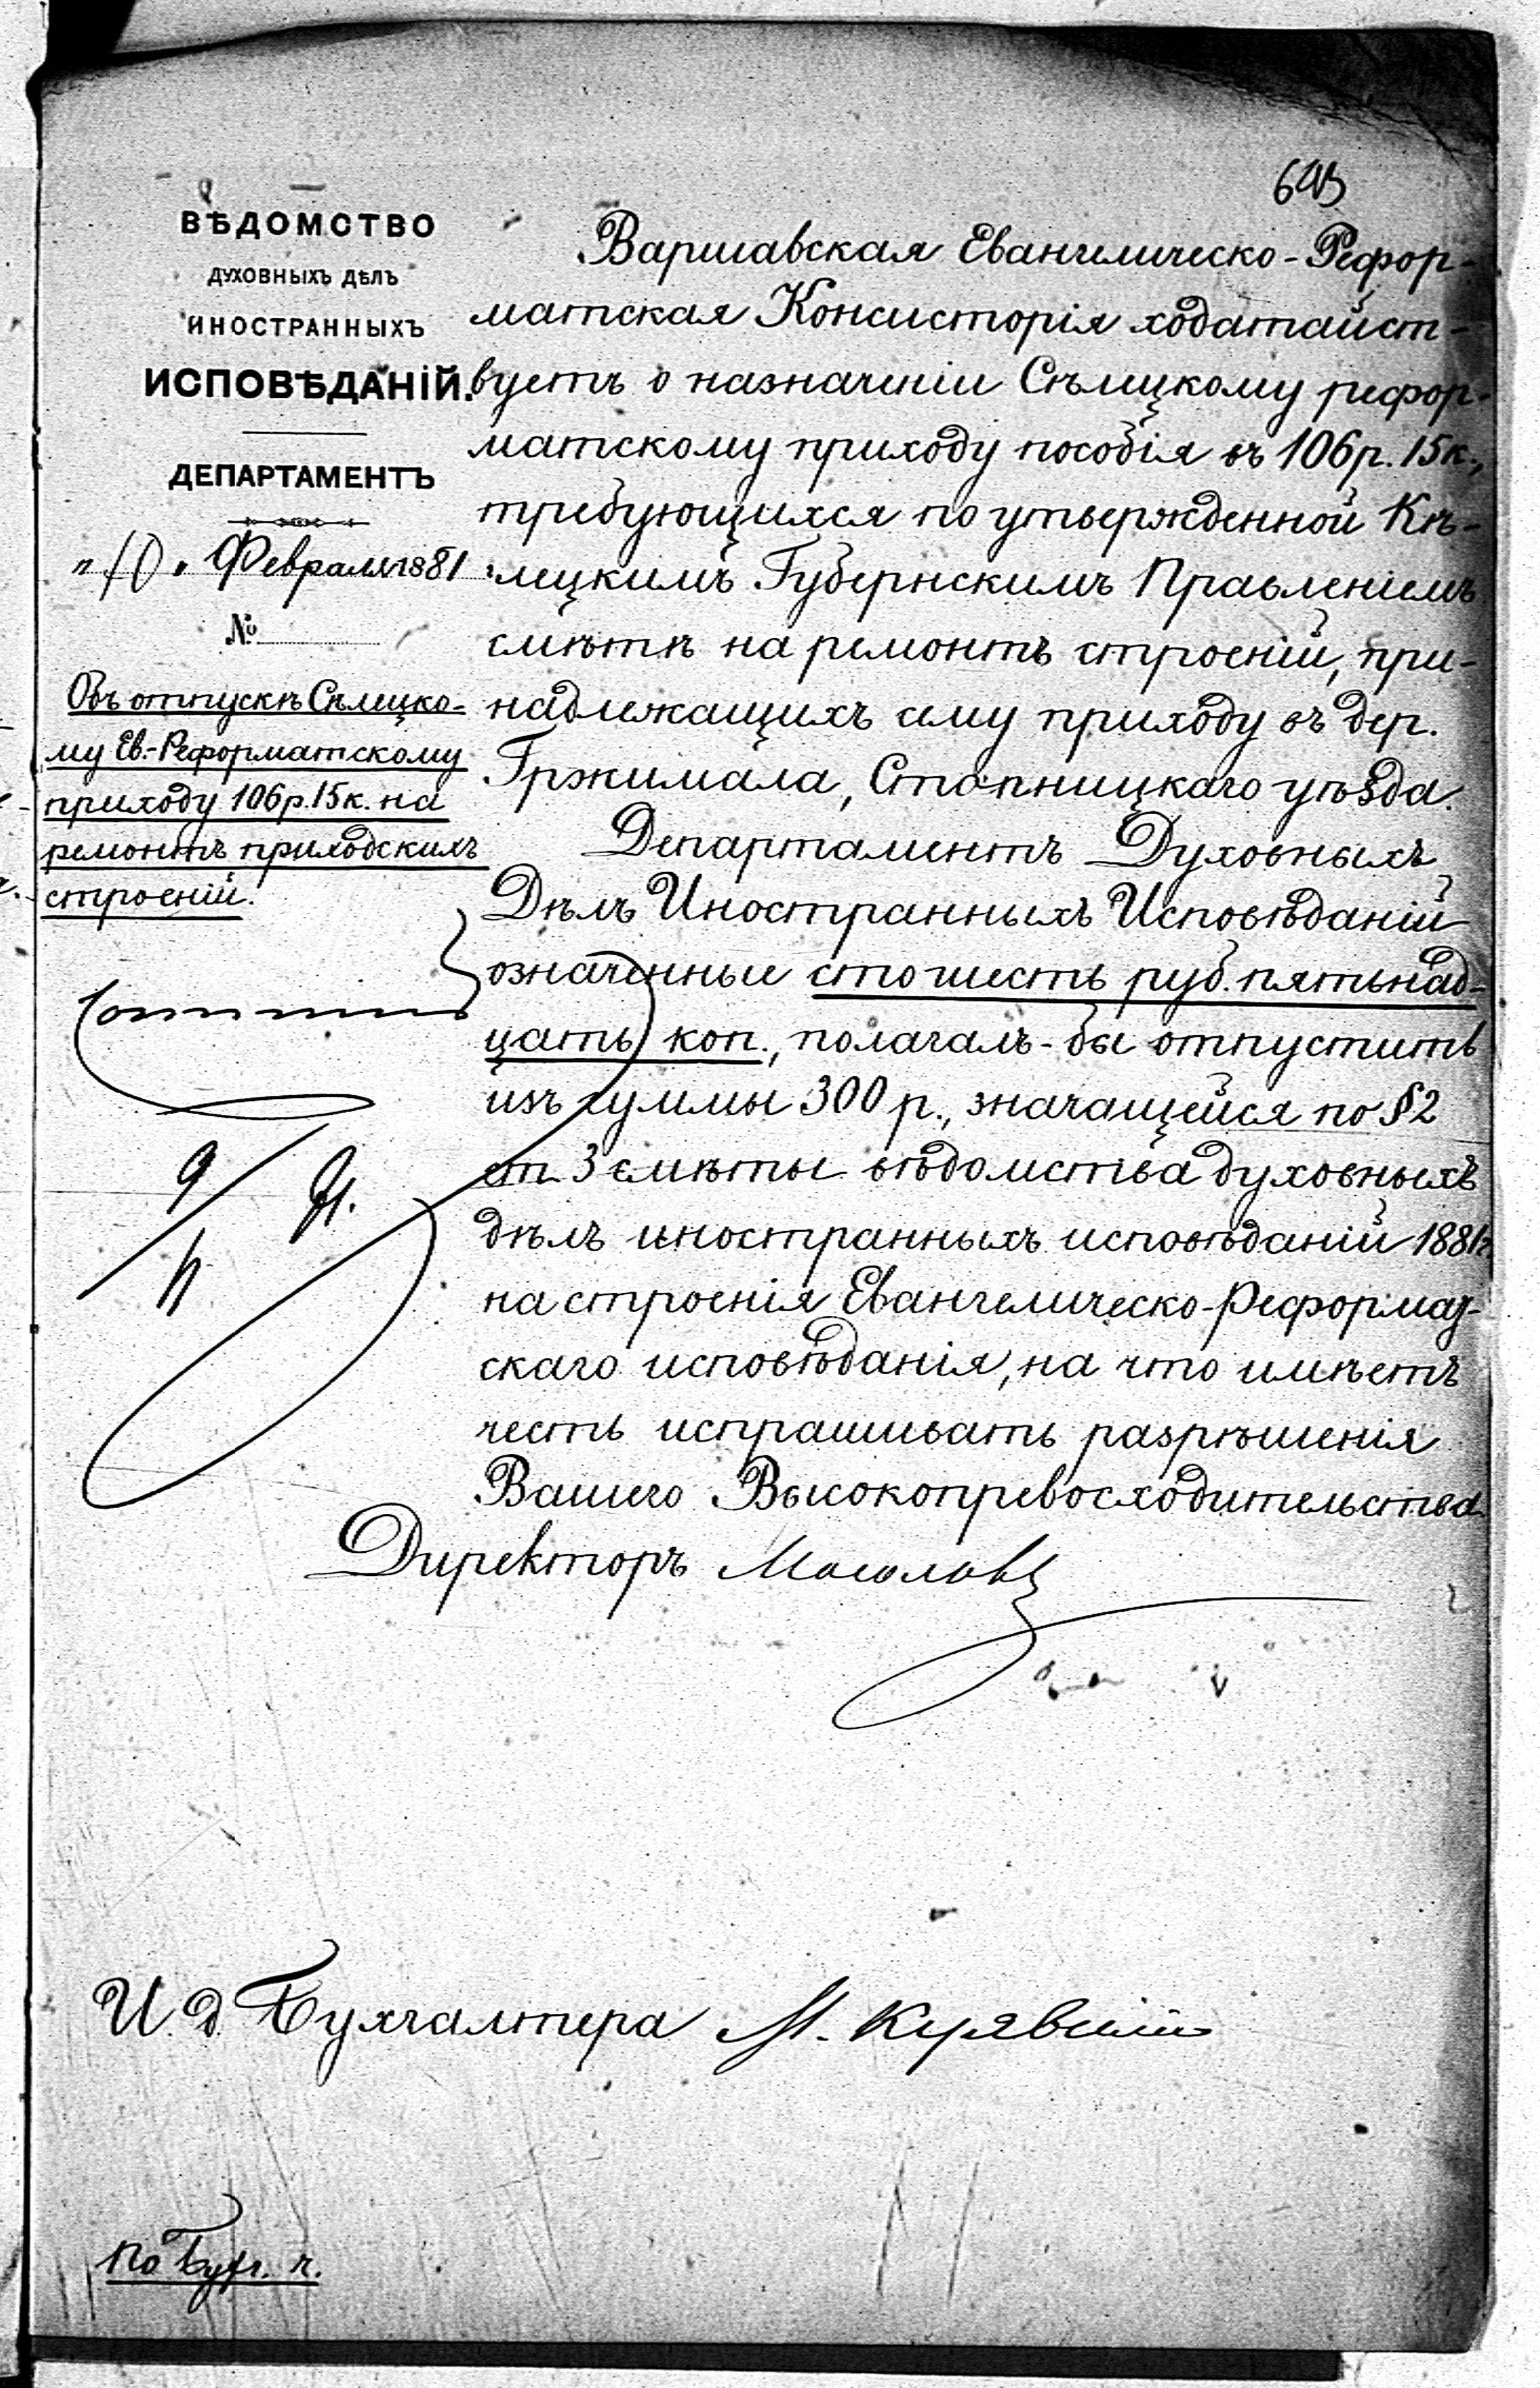 ВѢДОМСТВО
ДУХОВНЫХЪ ДѢЛЪ
ИНОСТРАННЫХЪ
ИСПОВѢДАНІЙ.
ДЕПАРТАМЕНТЪ
"10" Февраля 1881
№
Объ отпускѣ Сѣлецко-
му Ев.-Реформатскому
приходу 106р.15к. на
ремонтъ приходскихъ
строеній.
Варшавская Евангелическо-Рефор-
матская Консисторія ходатайст-
вуетъ о назначеніи Сѣлицкому рефор-
матскому приходу пособія въ 106р. 15к.,
требующихся по утвержденной Кѣ-
лецкимъ Губернскимъ Правленіемъ
смѣтѣ на ремонтъ строеній, при-
надлежащихъ сему приходу въ дер.
Гржимала, Стопницкаго уѣзда.
Департаментъ Духовныхъ
Дѣлъ Иностранныхъ Исповѣданій
означенные сто шесть руб. пятьнад-
цать коп., полагалъ-бы отпустить
изъ суммы 300 р., значащейся по §2
ст. 3 смѣты вѣдомства духовныхъ
дѣлъ иностранныхъ исповѣданій 1881г.
на строенія Евангелическо-Реформат-
скаго исповѣданія, на что имѣетъ
честь испрашивать разрѣшенія
Вашего Высокопревосходительства.
Директоръ Мосоловъ
И. д. Бухгалтера М. Куявскій
По Бухг. ч.